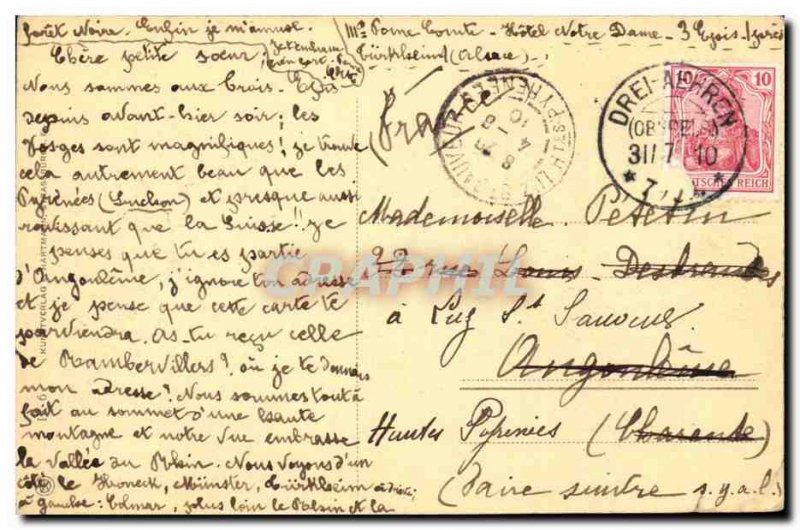 forêt Noire. Enfin je m'amuse.
Mlle Pome Comte - Hôtel Notre Dame - 3 Epis
Türkheim (Alsace)
Chère petite sœur
Je t'embrasse
Nous sommes aux trois-Epis
depuis avant-hier soir; les
Vosges sont magnifiques! je trouve
cela autrement beau que les
Pyrénées (Luchon) et presque aussi
ravissant que la Suisse!! Je
penses que tu es partie
d'Angoulême, j'ignore ton adresse
et je pense que cette carte te
parviendra. As-tu reçu celle
de Rambervillers? où je te donnais
mon adresse? Nous sommes tout à
fait au sommet d'une haute
montagne et notre vue embrasse
la vallée du Rhin. Nous voyons d'un
côté le Honeck, Münster, Türkheim à droite;
à gauche: Colmar, plus loin le Rhin et la
(France)
PYRENEES
DREI-AEHREN
31/7 10
10
DEUTSCHES REICH
Mademoiselle Petetin
22 rue Louis Desbrandes
à Luz St Sauveur
Angoulême
Hautes Pyrénées (Charente)
(Faire suivre s.v.p.)
CRAPHIL